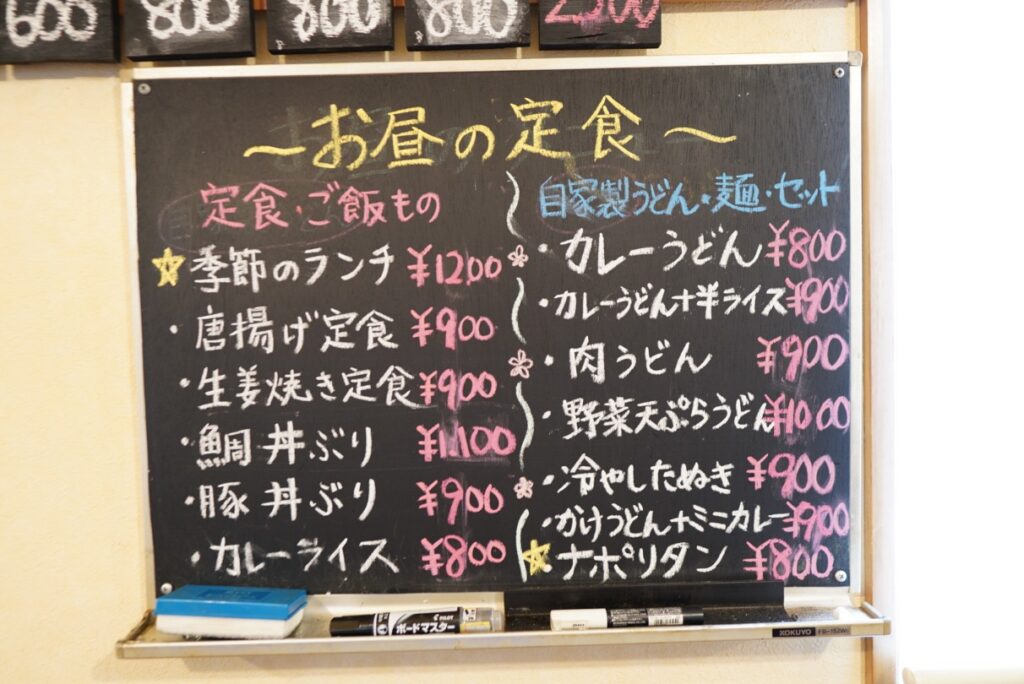 600
800
800
800
2500
～お昼の定食～
定食・ご飯もの
季節のランチ ¥1200
・唐揚げ定食 ¥900
・生姜焼き定食 ¥900
・鯛丼ぶり ¥1100
・豚丼ぶり ¥900
・カレーライス ¥800
自家製うどん・麺・セット
・カレーうどん ¥800
・カレーうどん+半ライス ¥900
・肉うどん ¥900
・野菜天ぷらうどん ¥1000
・冷やしたぬき ¥900
・かけうどん+ミニカレー ¥900
ナポリタン ¥800
PILOT
ボードマスター
KOKUYO